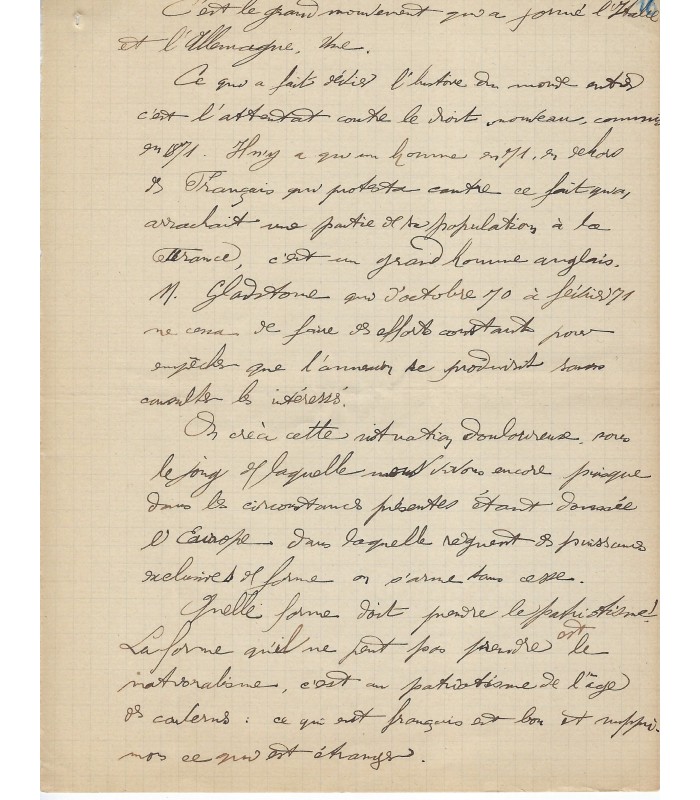 C'est le grand mouvement qui a formé l'Italie
et l'Allemagne, une.
Ce qui a fait dévier l'histoire du monde entier
c'est l'attentat contre le droit nouveau, commis
en 1871. Il n'y a qu'un homme en 71, en dehors
des Français qui protesta contre ce fait qui
arrachait une partie de sa population à la
France, c'est un grand homme anglais.
M. Gladstone qui d'octobre 70 à février 71
ne cessa de faire des efforts constants pour
empêcher que l'annexion se produisit sans
consulter les intéressés.
On créa cette situation douloureuse, sous
le joug de laquelle nous vivons encore puisque
dans les circonstances présentes étant donnée
l'Europe dans laquelle règnent des puissances
exclusives de forme on s'arme sans cesse.
Quelle forme doit prendre le patriotisme!
La forme qu'il ne peut pas prendre est le
c'est un patriotisme de l'âge
des cavernes : ce qui est français est bon et suppri-
mons ce qui est étranger.